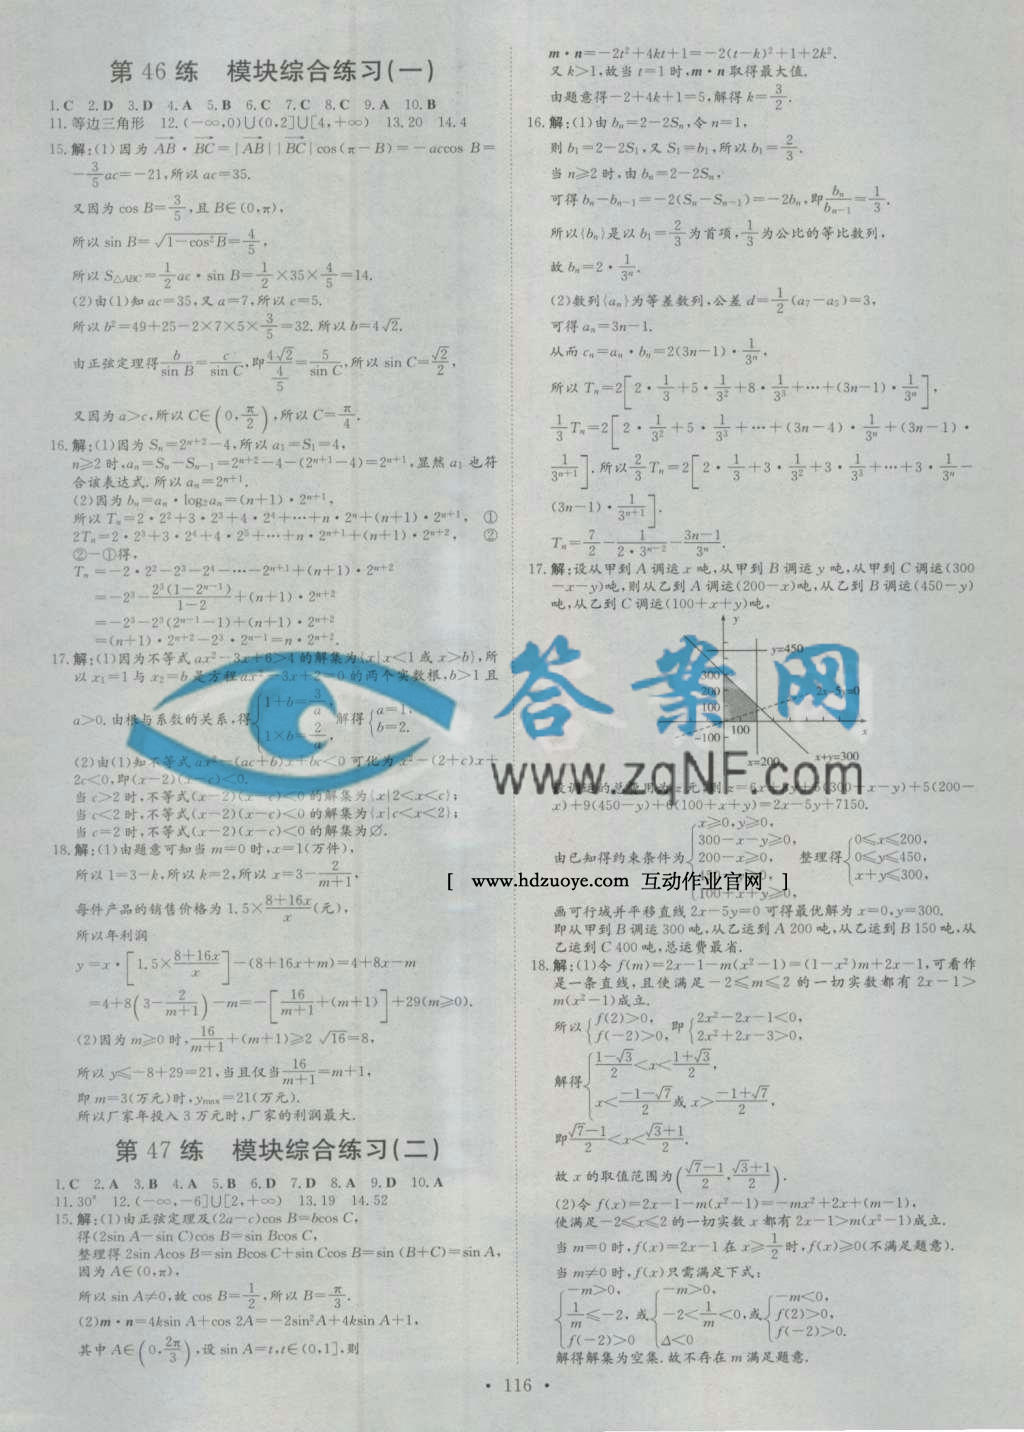 第 46 练 模块综合练习(一)
1.C 2.D 3.D 4.A 5.B 6.C 7.C 8.C 9.A 10.B
11.等边三角形 12.(-∞,0)∪(0,2]∪[4,+∞) 13.20 14.4
15.解:(1)因为 AB·BC=|AB||BC|cos(π-B)=-accos B=
-3/5 ac=-21,所以 ac=35.
又因为 cos B=3/5,且 B∈(0,π),
所以 sin B=√(1-cos²B)=4/5,
所以 S△ABC=1/2 ac·sin B=1/2×35×4/5=14.
(2)由(1)知 ac=35,又 a=7,所以 c=5.
所以 b²=49+25-2×7×5×3/5=32.所以 b=4√2.
由正弦定理得 b/sin B=c/sin C,即 4√2/(4/5)=5/sin C,所以 sin C=√2/2,
又因为 a>c,所以 C∈(0,π/2),所以 C=π/4.
16.解:(1)因为 Sₙ=2ⁿ⁺²-4,所以 a₁=S₁=4,
n≥2 时,aₙ=Sₙ-Sₙ₋₁=2ⁿ⁺²-4-(2ⁿ⁺¹-4)=2ⁿ⁺¹,显然 a₁ 也符
合该表达式.所以 aₙ=2ⁿ⁺¹.
(2)因为 bₙ=aₙ·log₂aₙ=(n+1)·2ⁿ⁺¹,
所以 Tₙ=2·2²+3·2³+4·2⁴+…+n·2ⁿ+(n+1)·2ⁿ⁺¹, ①
2Tₙ=2·2³+3·2⁴+4·2⁵+…+n·2ⁿ⁺¹+(n+1)·2ⁿ⁺², ②
②-①得,
Tₙ=-2·2²-2³-2⁴-…-2ⁿ⁺¹+(n+1)·2ⁿ⁺²
=-2³-2³(1-2ⁿ⁻¹)/(1-2)+(n+1)·2ⁿ⁺²
=-2³-2³(2ⁿ⁻¹-1)+(n+1)·2ⁿ⁺²
=(n+1)·2ⁿ⁺²-2³·2ⁿ⁻¹=n·2ⁿ⁺².
17.解:(1)因为不等式 ax²-3x+6>4 的解集为{x|x<1 或 x>b},所
以 x₁=1 与 x₂=b 是方程 ax²-3x+2=0 的两个实数根,b>1 且
a>0.由根与系数的关系,得{1+b=3/a, 1×b=2/a, 解得{a=1, b=2.
(2)由(1)知不等式 ax²-(ac+b)x+bc<0 可化为 x²-(2+c)x+
2c<0,即(x-2)(x-c)<0.
当 c>2 时,不等式(x-2)(x-c)<0 的解集为{x|2<x<c};
当 c<2 时,不等式(x-2)(x-c)<0 的解集为{x|c<x<2};
当 c=2 时,不等式(x-2)(x-c)<0 的解集为∅.
18.解:(1)由题意可知当 m=0 时,x=1(万件),
所以 1=3-k,所以 k=2,所以 x=3-2/(m+1),
每件产品的销售价格为 1.5×(8+16x)/x(元),
所以年利润
y=x·[1.5×(8+16x)/x]-(8+16x+m)=4+8x-m
=4+8(3-2/(m+1))-m=-[16/(m+1)+(m+1)]+29(m≥0).
(2)因为 m≥0 时,16/(m+1)+(m+1)≥2√16=8,
所以 y≤-8+29=21,当且仅当 16/(m+1)=m+1,
即 m=3(万元)时,yₘₐₓ=21(万元).
所以厂家年投入 3 万元时,厂家的利润最大.
第 47 练 模块综合练习(二)
1.C 2.A 3.B 4.A 5.B 6.D 7.D 8.A 9.D 10.A
11.30° 12.(-∞,-6]∪[2,+∞) 13.19 14.52
15.解:(1)由正弦定理及(2a-c)cos B=bcos C,
得(2sin A-sin C)cos B=sin Bcos C,
整理得 2sin Acos B=sin Bcos C+sin Ccos B=sin (B+C)=sin A,
因为 A∈(0,π),
所以 sin A≠0,故 cos B=1/2,所以 B=π/3.
(2)m·n=4ksin A+cos 2A=-2sin²A+4ksin A+1,
其中 A∈(0,2π/3),设 sin A=t,t∈(0,1],则
m·n=-2t²+4kt+1=-2(t-k)²+1+2k².
又 k>1,故当 t=1 时,m·n 取得最大值.
由题意得-2+4k+1=5,解得 k=3/2.
16.解:(1)由 bₙ=2-2Sₙ,令 n=1,
则 b₁=2-2S₁,又 S₁=b₁,所以 b₁=2/3.
当 n≥2 时,由 bₙ=2-2Sₙ,
可得 bₙ-bₙ₋₁=-2(Sₙ-Sₙ₋₁)=-2bₙ,即 bₙ/bₙ₋₁=1/3.
所以{bₙ}是以 b₁=2/3 为首项,1/3 为公比的等比数列,
故 bₙ=2·1/3ⁿ.
(2)数列{aₙ}为等差数列,公差 d=1/2(a₇-a₅)=3,
可得 aₙ=3n-1.
从而 cₙ=aₙ·bₙ=2(3n-1)·1/3ⁿ,
所以 Tₙ=2[2·1/3+5·1/3²+8·1/3³+…+(3n-1)·1/3ⁿ],
1/3 Tₙ=2[2·1/3²+5·1/3³+…+(3n-4)·1/3ⁿ+(3n-1)·
1/3ⁿ⁺¹].所以 2/3 Tₙ=2[2·1/3+3·1/3²+3·1/3³+…+3·1/3ⁿ-
(3n-1)·1/3ⁿ⁺¹].
Tₙ=7/2-1/(2·3ⁿ⁻²)-(3n-1)/3ⁿ.
17.解:设从甲到 A 调运 x 吨,从甲到 B 调运 y 吨,从甲到 C 调运(300
-x-y)吨,则从乙到 A 调运(200-x)吨,从乙到 B 调运(450-y)
吨,从乙到 C 调运(100+x+y)吨,
y
y=450
300
200
100
2x-5y=0
-100
100
x
x=200
x+y=300
z=6x+ +5(300-x-y)+5(200-
x)+9(450-y)+6(100+x+y)=2x-5y+7150.
由已知得约束条件为{x≥0,y≥0, 300-x-y≥0, 200-x≥0, 450-y≥0, 100+x+y≥0, 整理得{0≤x≤200, 0≤y≤450, x+y≤300,
画可行域并平移直线 2x-5y=0 可得最优解为 x=0,y=300.
即从甲到 B 调运 300 吨,从乙运到 A 200 吨,从乙运到 B 150 吨,从
乙运到 C 400 吨,总运费最省.
18.解:(1)令 f(m)=2x-1-m(x²-1)=(1-x²)m+2x-1,可看作
是一条直线,且使满足-2≤m≤2 的一切实数都有 2x-1>
m(x²-1)成立.
所以{f(2)>0, f(-2)>0, 即{2x²-2x-1<0, 2x²+2x-3>0,
解得{(1-√3)/2<x<(1+√3)/2, x<(-1-√7)/2 或 x>(-1+√7)/2,
即(√7-1)/2<x<(√3+1)/2.
故 x 的取值范围为((√7-1)/2,(√3+1)/2).
(2)令 f(x)=2x-1-m(x²-1)=-mx²+2x+(m-1),
使满足-2≤x≤2 的一切实数 x 都有 2x-1>m(x²-1)成立.
当 m=0 时,f(x)=2x-1 在 x≥1/2 时,f(x)≥0(不满足题意).
当 m≠0 时,f(x)只需满足下式:
{-m>0, 1/m≤-2, f(-2)>0 或{-m>0, -2<1/m<0, Δ<0 或{-m<0, f(2)>0, f(-2)>0.
解得解集为空集.故不存在 m 满足题意.
· 116 ·
答案网
www.zqNF.com
[ www.hdzuoye.com 互动作业官网 ]